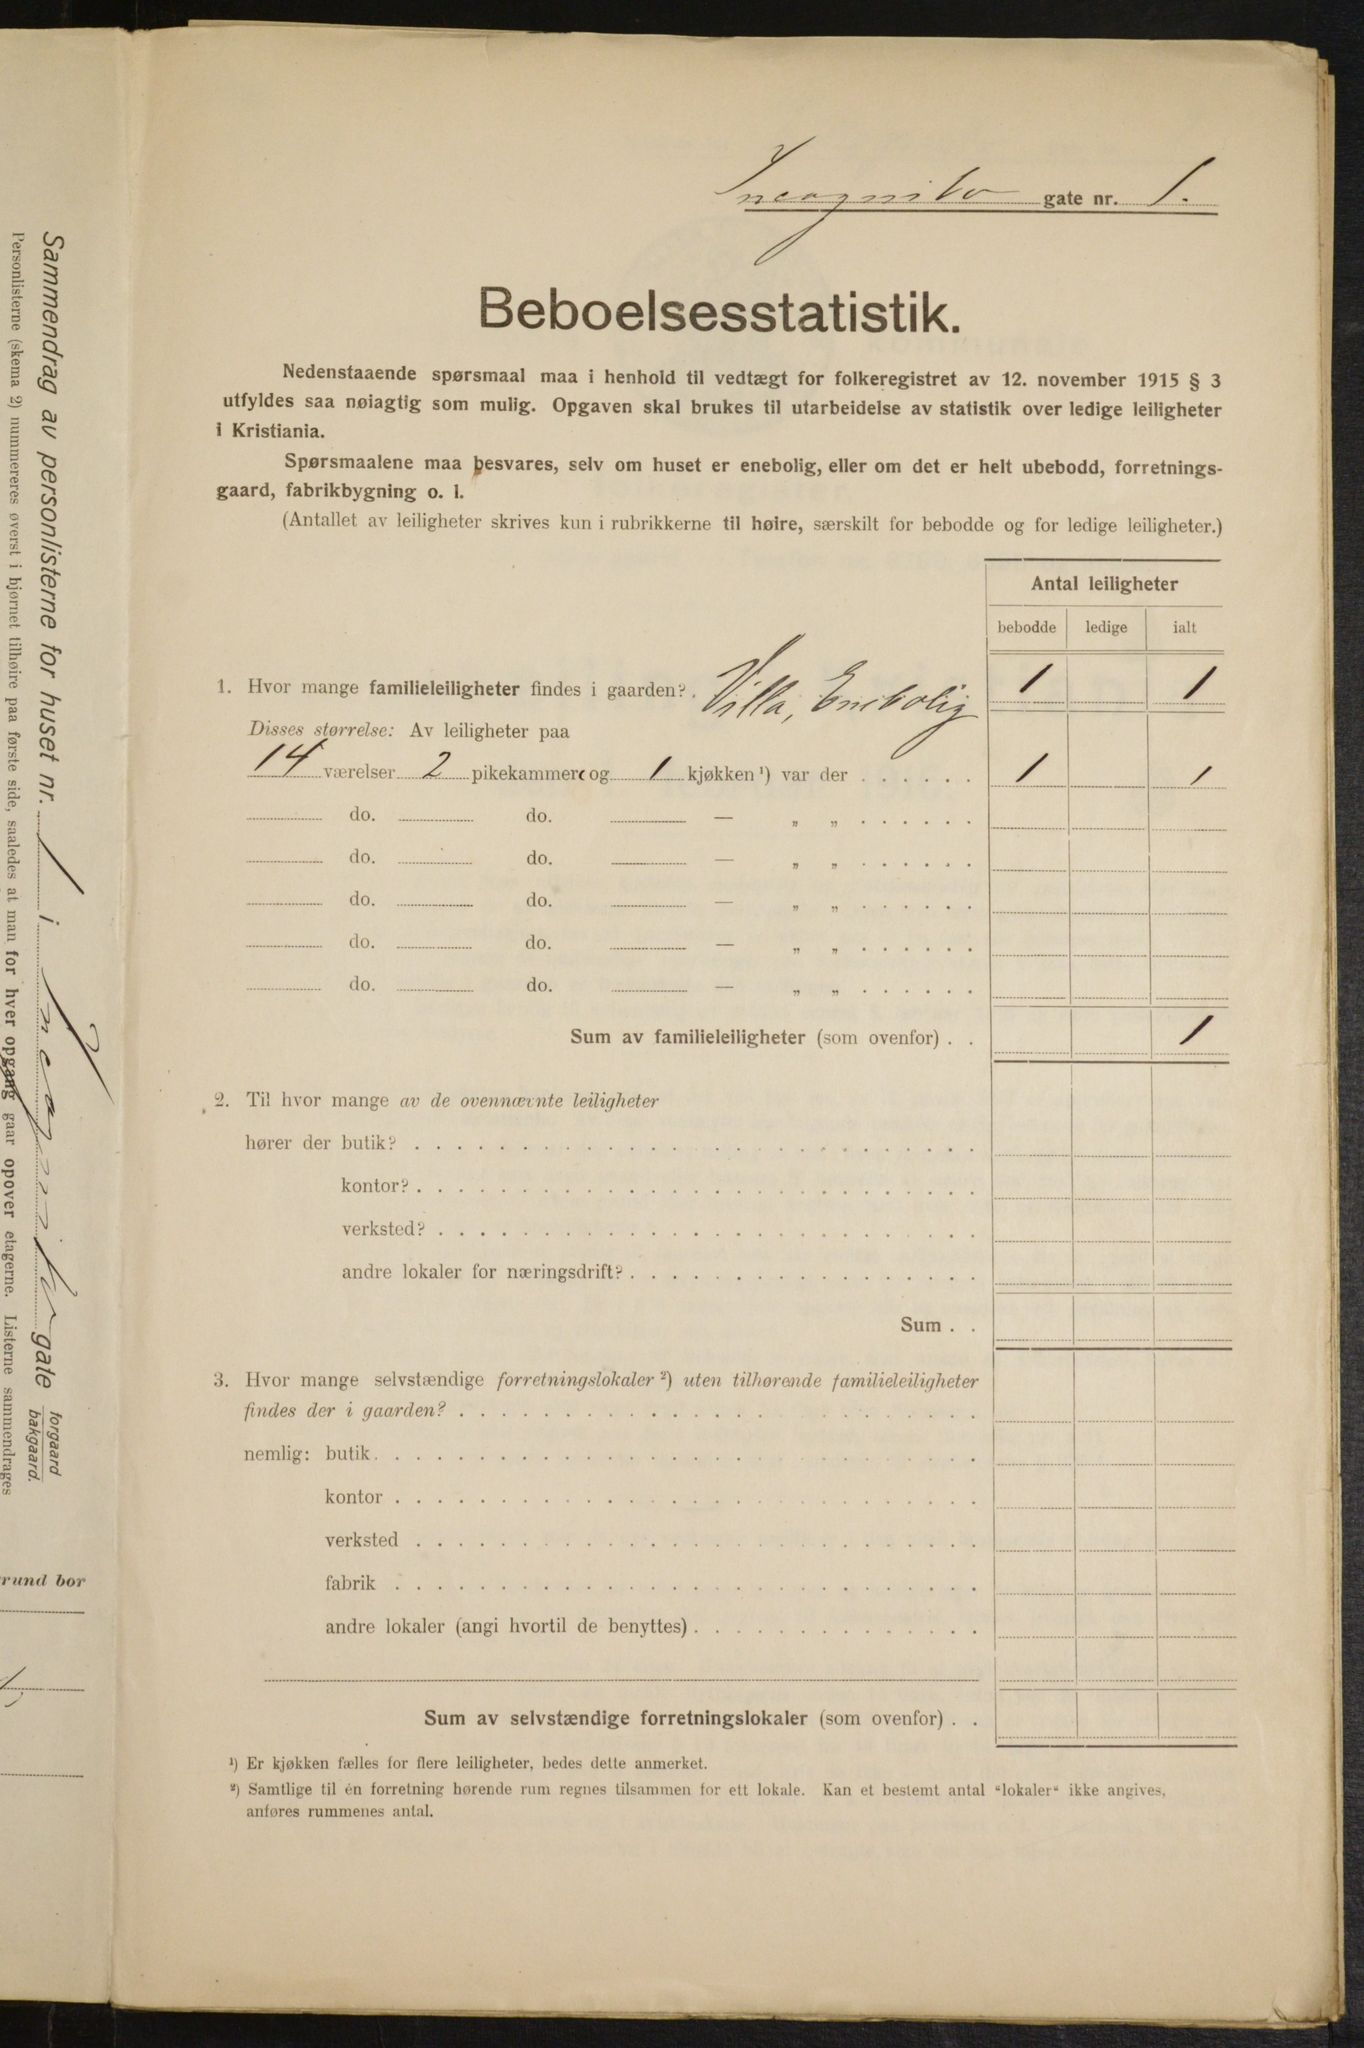 Incognito gate nr. 1.
Beboelsesstatistik.
Nedenstaaende spørsmaal maa i henhold til vedtægt for folkeregistret av 12. november 1915 § 3
utfyldes saa nøiagtig som mulig. Opgaven skal brukes til utarbeidelse av statistik over ledige leiligheter
i Kristiania.
Spørsmaalene maa besvares, selv om huset er enebolig, eller om det er helt ubebodd, forretnings-
gaard, fabrikbygning o. l.
(Antallet av leiligheter skrives kun i rubrikkerne til høire, særskilt for bebodde og for ledige leiligheter.)
Antal leiligheter
bebodde ledige ialt
1. Hvor mange familieleiligheter findes i gaarden? . Villa, Enebolig 1 1
Disses størrelse: Av leiligheter paa
14 værelser 2 pikekammer og 1 kjøkken ¹) var der . . . . . . 1 1
do. do. — „ „ . . . . . .
do. do. — „ „ . . . . . .
do. do. — „ „ . . . . . .
do. do. — „ „ . . . . . .
do. do. — „ „ . . . . . .
Sum av familieleiligheter (som ovenfor) . . 1
2. Til hvor mange av de ovennævnte leiligheter
hører der butik? . . . . . . . . . . . . . . . . . . . . . . . . .
kontor? . . . . . . . . . . . . . . . . . . . . . . . . .
verksted? . . . . . . . . . . . . . . . . . . . . . . . .
andre lokaler for næringsdrift? . . . . . . . . . . . . . . . .
Sum . .
3. Hvor mange selvstændige forretningslokaler ²) uten tilhørende familieleiligheter
findes der i gaarden? . . . . . . . . . . . . . . . . . . . . . .
nemlig: butik. . . . . . . . . . . . . . . . . . . . . . . . . .
kontor . . . . . . . . . . . . . . . . . . . . . . . . .
verksted . . . . . . . . . . . . . . . . . . . . . . . .
fabrik . . . . . . . . . . . . . . . . . . . . . . . . .
andre lokaler (angi hvortil de benyttes) . . . . . . . . . . . . . .
Sum av selvstændige forretningslokaler (som ovenfor) . .
¹) Er kjøkken fælles for flere leiligheter, bedes dette anmerket.
²) Samtlige til én forretning hørende rum regnes tilsammen for ett lokale. Kan et bestemt antal "lokaler" ikke angives,
anføres rummenes antal.
Sammendrag av personlisterne for huset nr. 1 i Incognito gate forgaard
bakgaard.
Personlisterne (skema 2) nummereres øverst i hjørnet tilhøire paa første side, saaledes at man for hver opgang gaar opover etagerne. Listerne sammendrages
rund bor